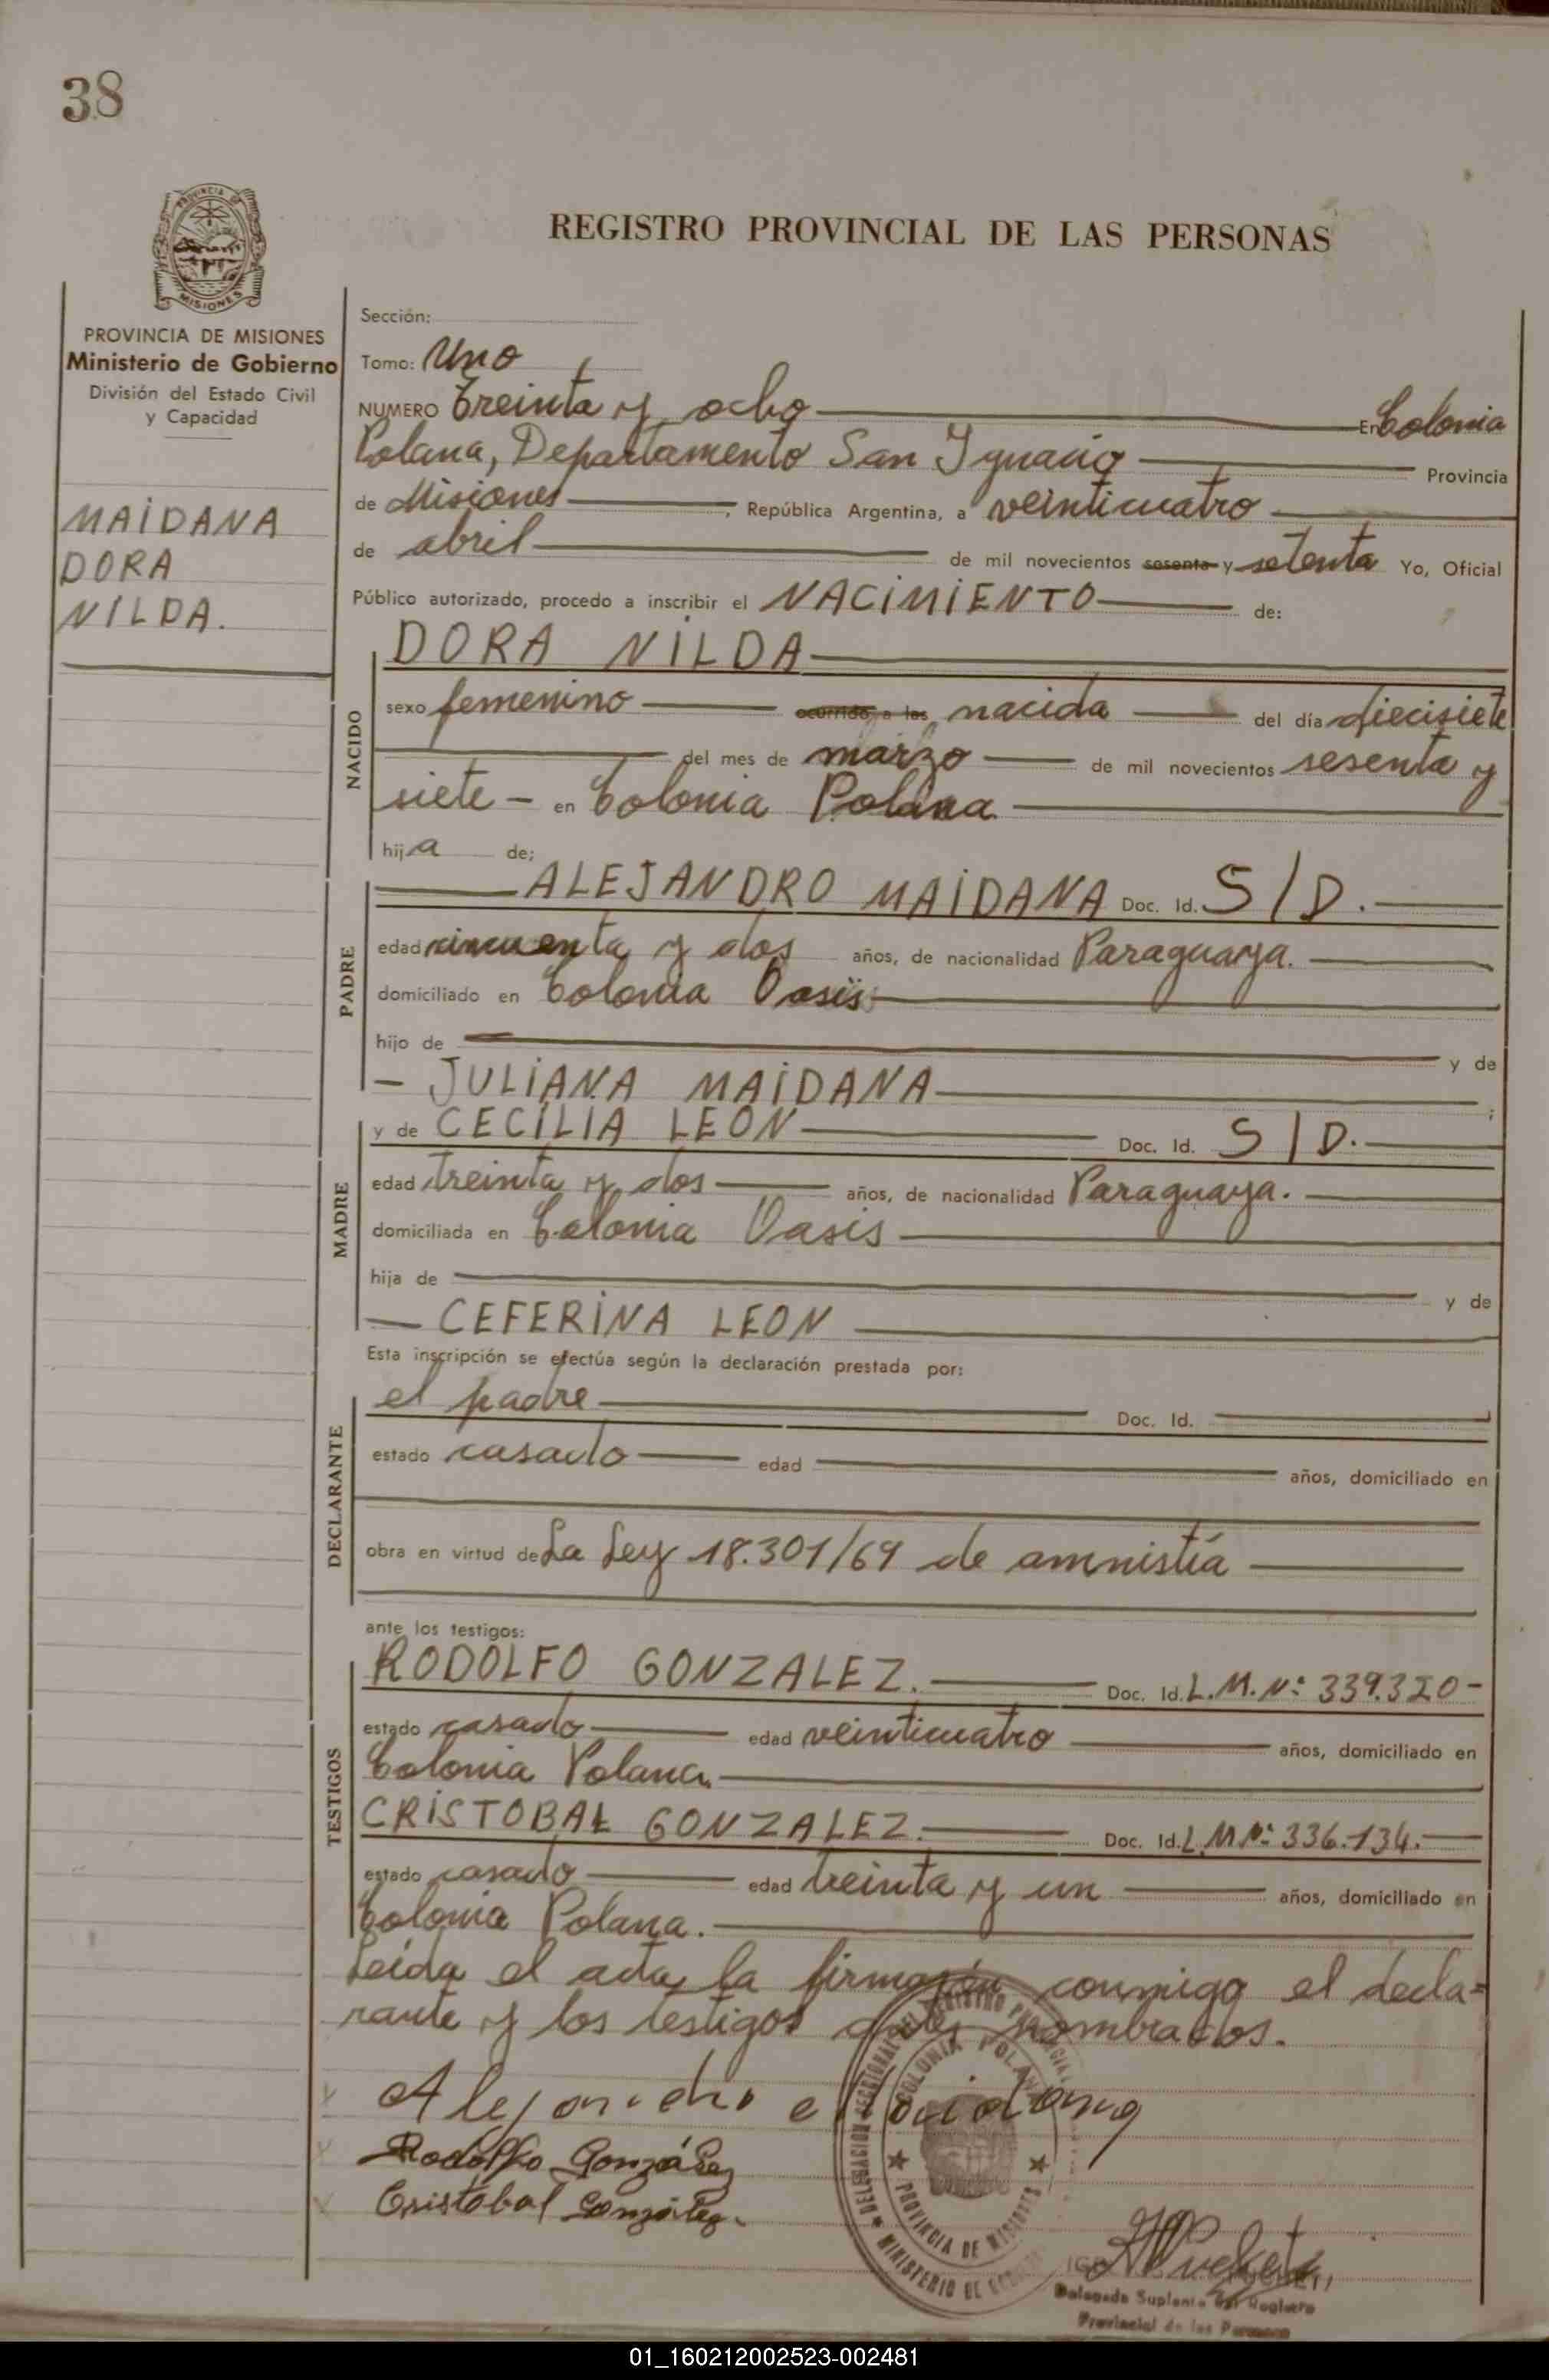 38
PROVINCIA DE
MISIONES
REGISTRO PROVINCIAL DE LAS PERSONAS
PROVINCIA DE MISIONES
Ministerio de Gobierno
División del Estado Civil
y Capacidad
MAIDANA
DORA
NILDA.
Sección:
Tomo: Uno
NUMERO Treinta y ocho En Colonia
Polana, Departamento San Ignacio Provincia
de Misiones, República Argentina, a veinticuatro
de abril de mil novecientos sesenta y setenta Yo, Oficial
Público autorizado, procedo a inscribir el NACIMIENTO de:
NACIDO
DORA NILDA
sexo femenino ocurrido a las nacida del día diecisiete
del mes de marzo de mil novecientos sesenta y
siete - en Colonia Polana
hija de;
PADRE
ALEJANDRO MAIDANA Doc. Id. S/D.
edad cincuenta y dos años, de nacionalidad Paraguaya.
domiciliado en Colonia Oasis
hijo de y de
- JULIANA MAIDANA ;
MADRE
y de CECILIA LEON Doc. Id. S/D.
edad treinta y dos años, de nacionalidad Paraguaya.
domiciliada en Colonia Oasis
hija de y de
- CEFERINA LEON
Esta inscripción se efectúa según la declaración prestada por:
DECLARANTE
el padre Doc. Id.
estado casado edad años, domiciliado en
obra en virtud de La Ley 18.301/69 de amnistía
ante los testigos:
TESTIGOS
RODOLFO GONZALEZ. Doc. Id. L.M.Nº: 339.320-
estado casado edad veinticuatro años, domiciliado en
Colonia Polana.
CRISTOBAL GONZALEZ. Doc. Id. L.M.Nº: 336.134.
estado casado edad treinta y un años, domiciliado en
Colonia Polana.
Leída el acta, la firma conmigo el decla=
rante y los testigos antes nombrados.
Alejandro Maidana
Rodolfo González
Cristobal González.
COLONIA POLANA
PROVINCIA DE MISIONES
MINISTERIO DE
Delegado Suplente del Registro
Provincial de las Personas
01_160212002523-002481